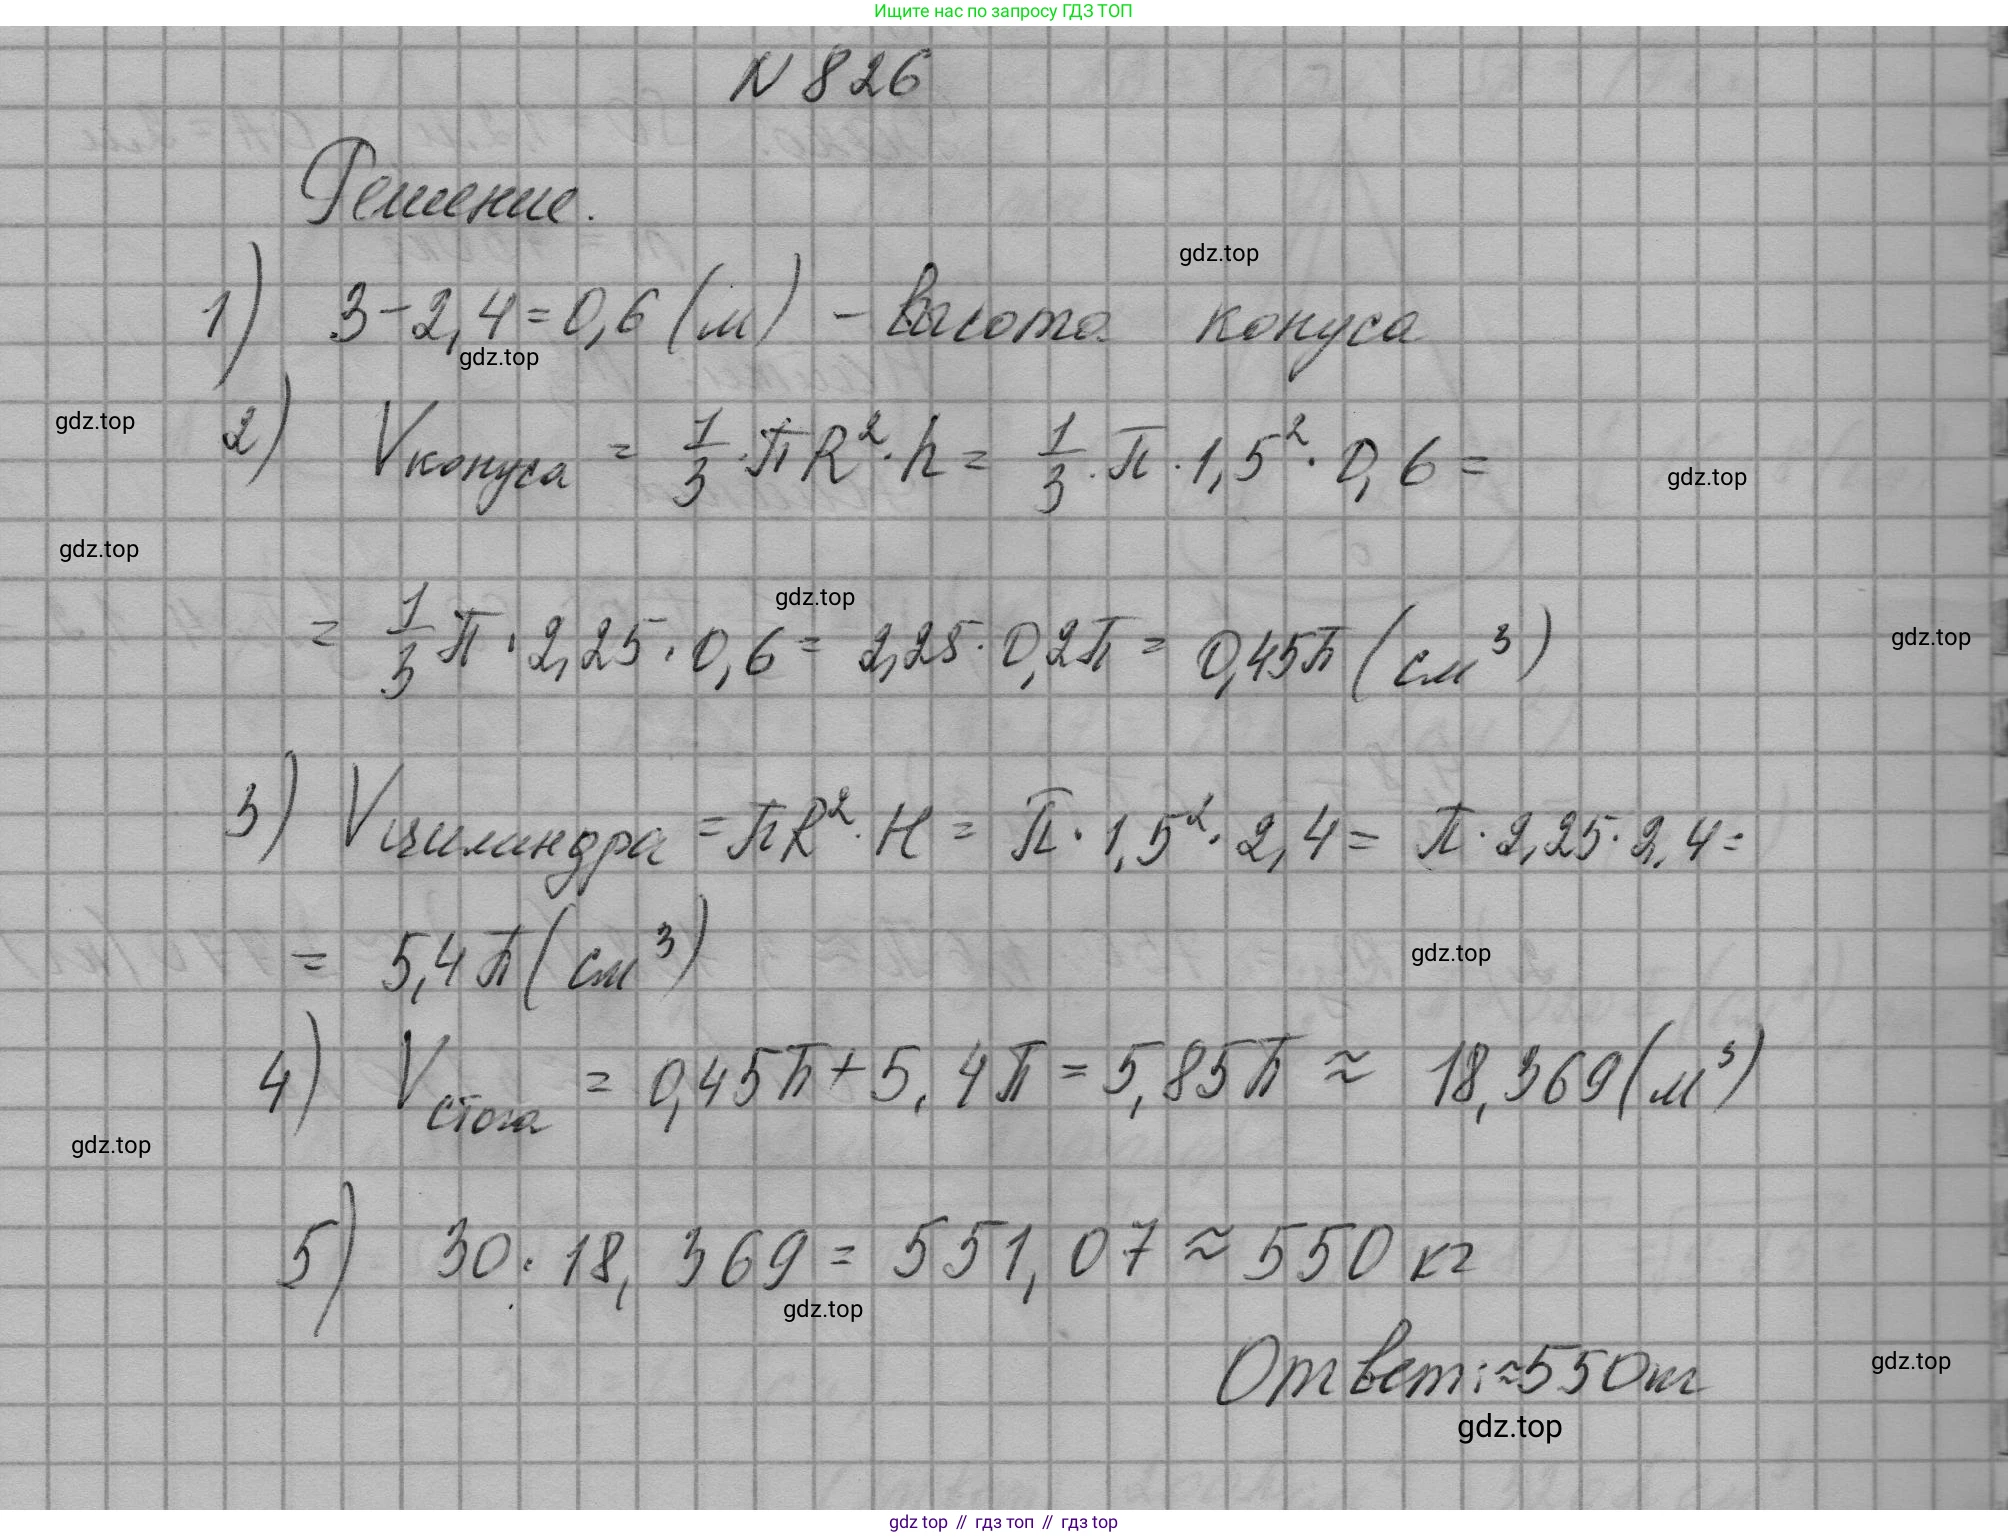 Ищите нас по запросу ГДЗ ТОП
N 826
Решение.
gdz.top
1) 3-2,4=0,6 (м) - высота конуса
gdz.top
gdz.top
2) Vконуса = 1/3 · πR² · h = 1/3 · π · 1,5² · 0,6 =
gdz.top
gdz.top
gdz.top
= 1/3 π · 2,25 · 0,6 = 2,25 · 0,2π = 0,45π (см³)
gdz.top
3) Vцилиндра = πR² · H = π · 1,5² · 2,4 = π · 2,25 · 2,4 =
= 5,4π (см³)
gdz.top
4) Vстога = 0,45π + 5,4π = 5,85π ≈ 18,369 (м³)
gdz.top
5) 30 · 18,369 = 551,07 ≈ 550 кг
gdz.top
Ответ: ≈550кг
gdz.top
gdz.top
gdz top // гдз топ // гдз top